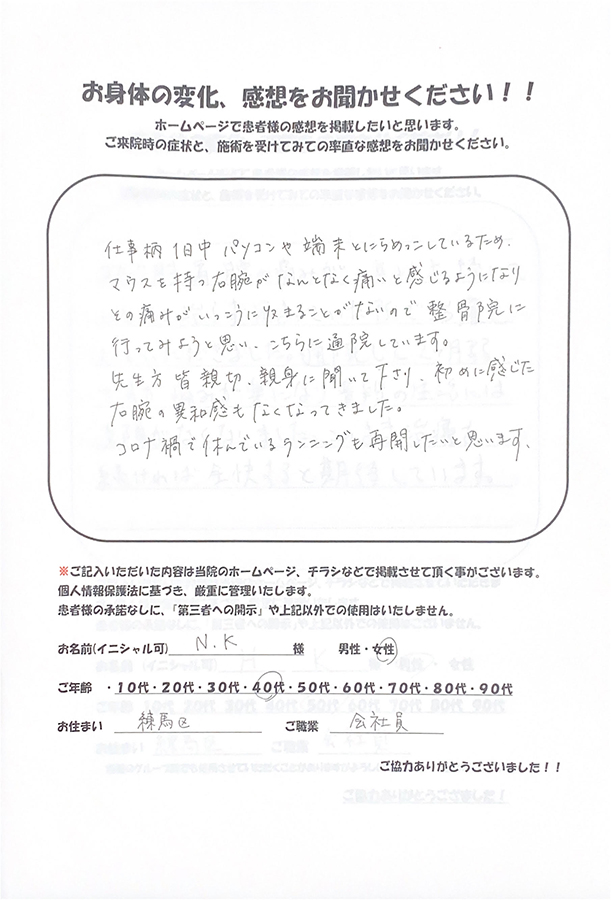 お身体の変化、感想をお聞かせください！！
ホームページで患者様の感想を掲載したいと思います。
ご来院時の症状と、施術を受けてみての率直な感想をお聞かせください。
仕事柄 1日中 パソコンや 端末とにらめっこしているため、
マウスを持つ右腕がなんとなく痛いと感じるようになり
その痛みがいっこうに収まることがないので 整骨院に
行ってみようと思い、こちらに通院しています。
先生方 皆 親切、親身に聞いて下さり、初めに感じた
右腕の異和感もなくなってきました。
コロナ禍で休んでいるランニングも再開したいと思います、
※ご記入いただいた内容は当院のホームページ、チラシなどで掲載させて頂く事がございます。
個人情報保護法に基づき、厳重に管理いたします。
患者様の承諾なしに、「第三者への開示」や上記以外での使用はいたしません。
お名前(イニシャル可) N.K 様 男性・女性
ご年齢 ・10代・20代・30代・40代・50代・60代・70代・80代・90代
お住まい 練馬区 ご職業 会社員
ご協力ありがとうございました！！